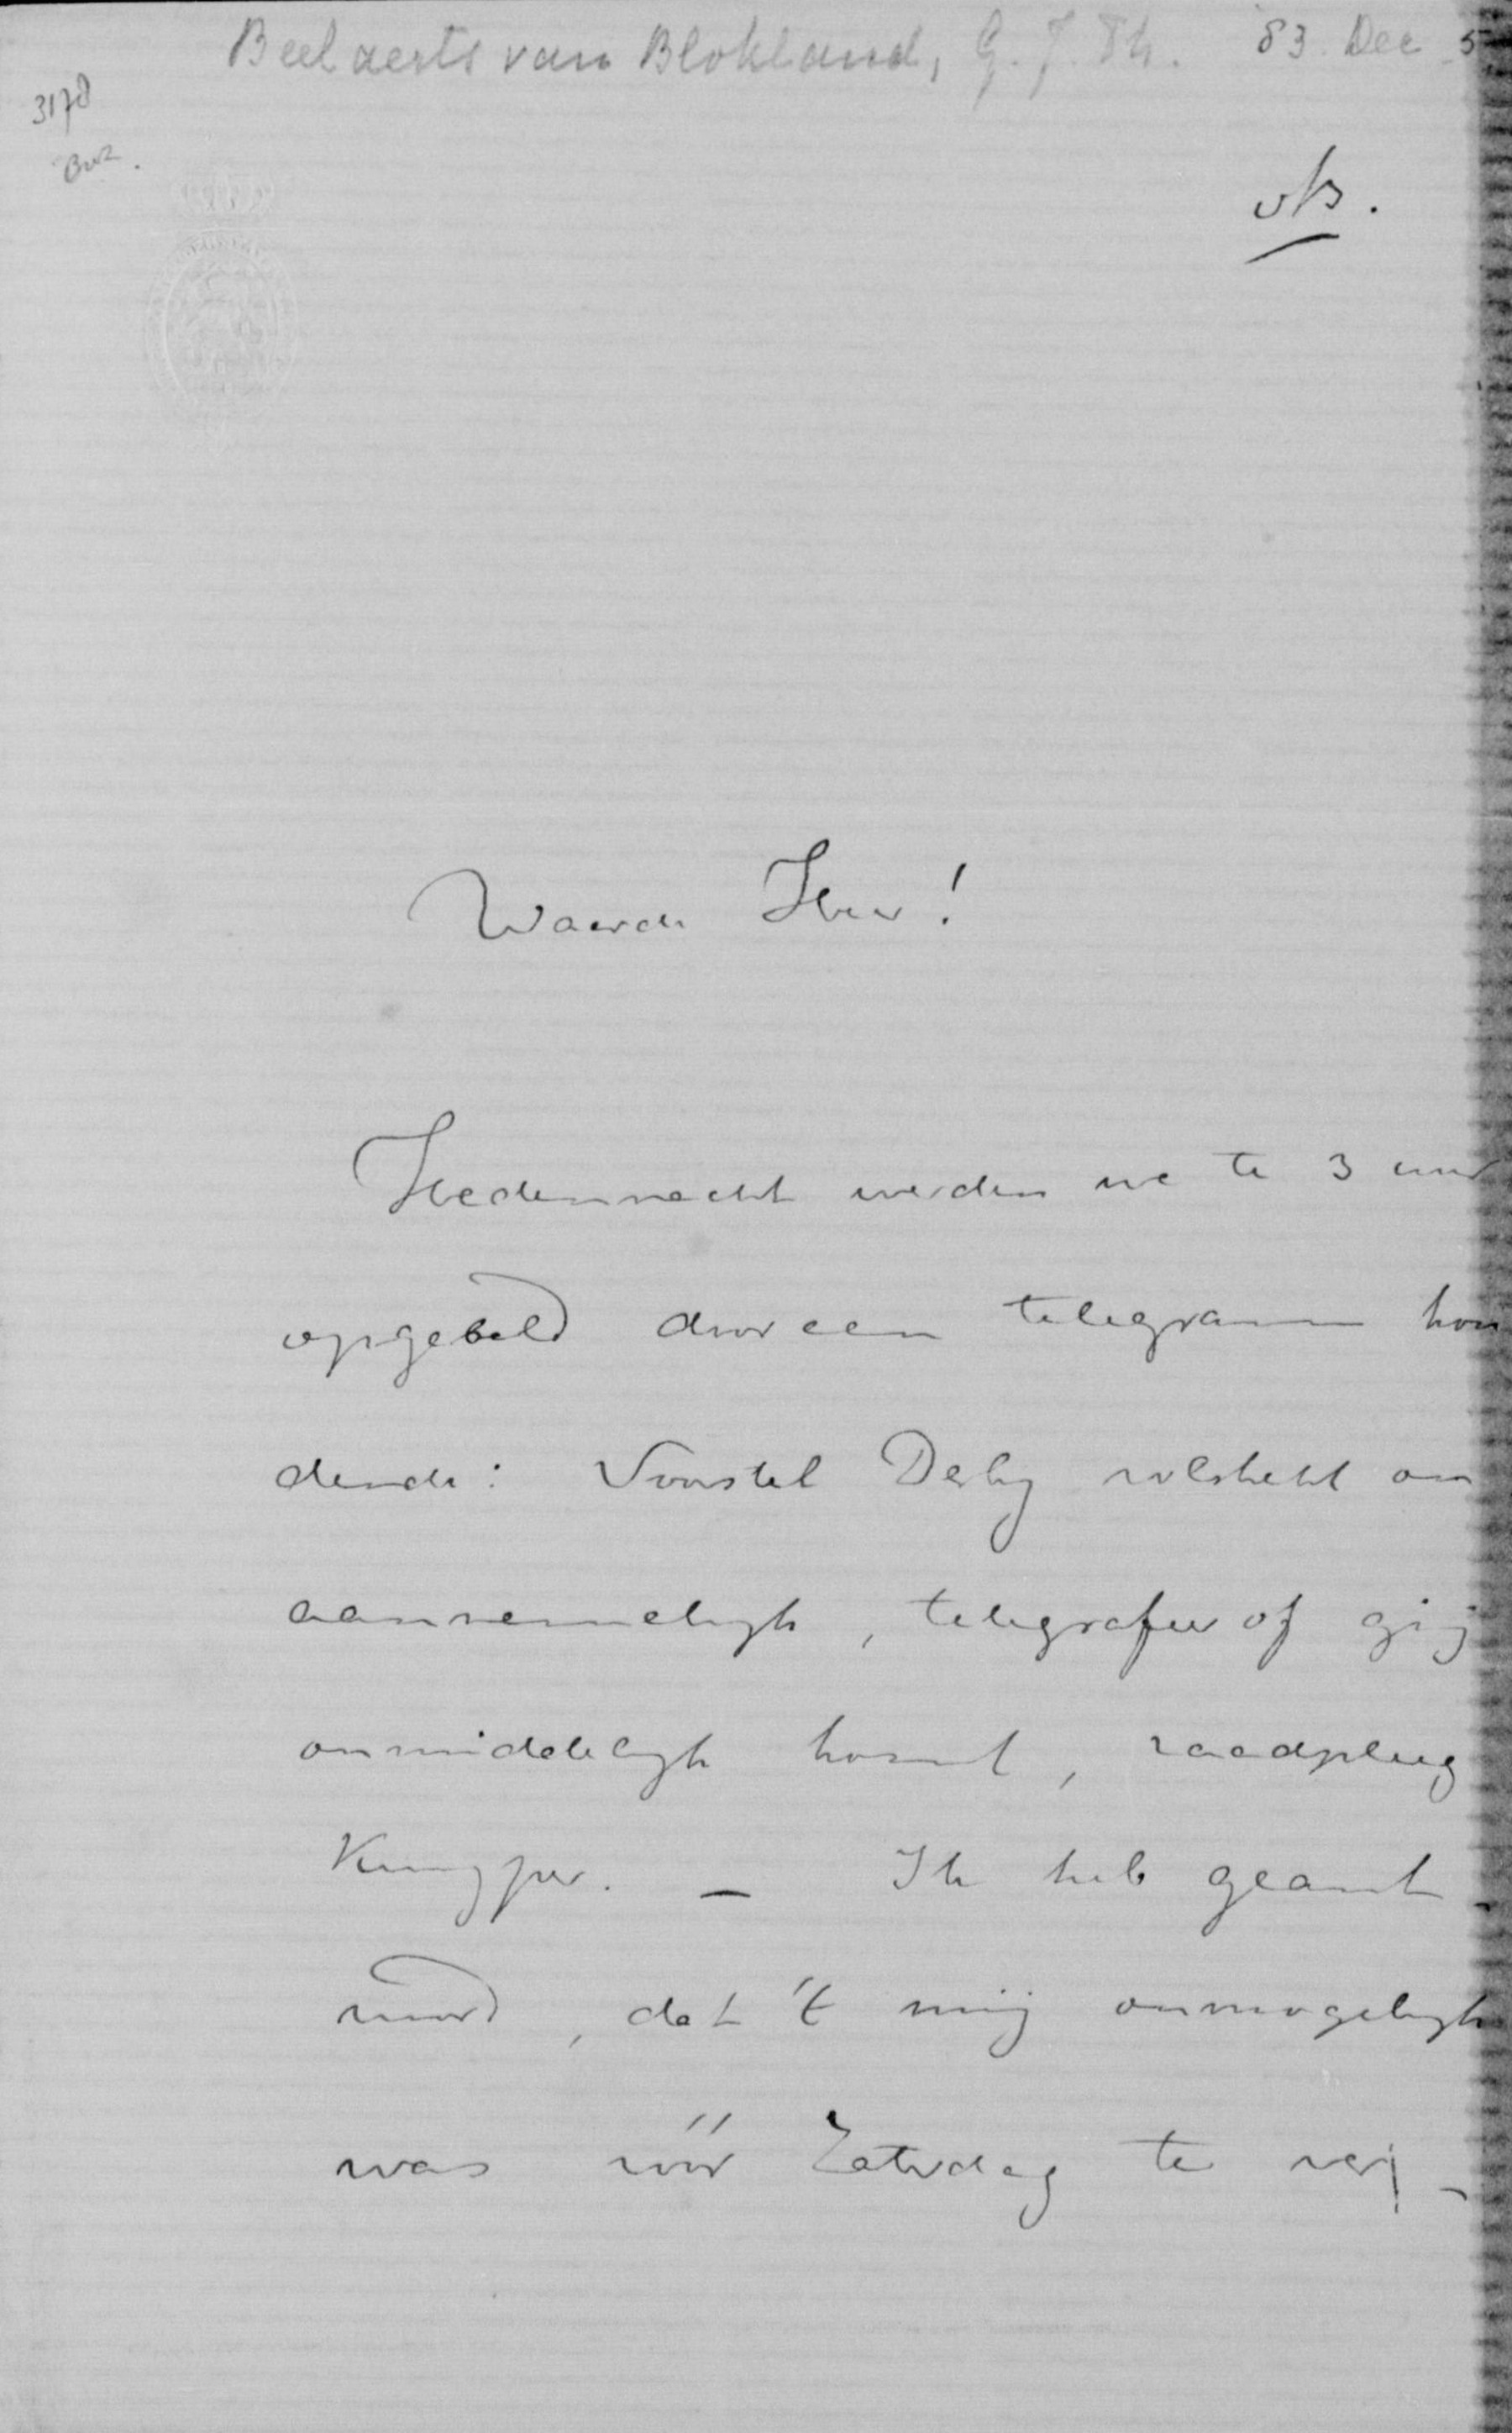 Beelaerts van Blokland, G.J.Th. 83 Dec 5
3178
Waarde Heer!
Hedennacht werden we te 3 uur
opgebeld door een telegram hou
dende: Voorstel Derby volstrekt on
aannemelijk, telegrafeer of gij
onmiddelijk komt, raadpleeg
Kuyper. – Ik heb geant-
woord, dat 't mij onmogelijk
was vóór Zaterdag te ver-